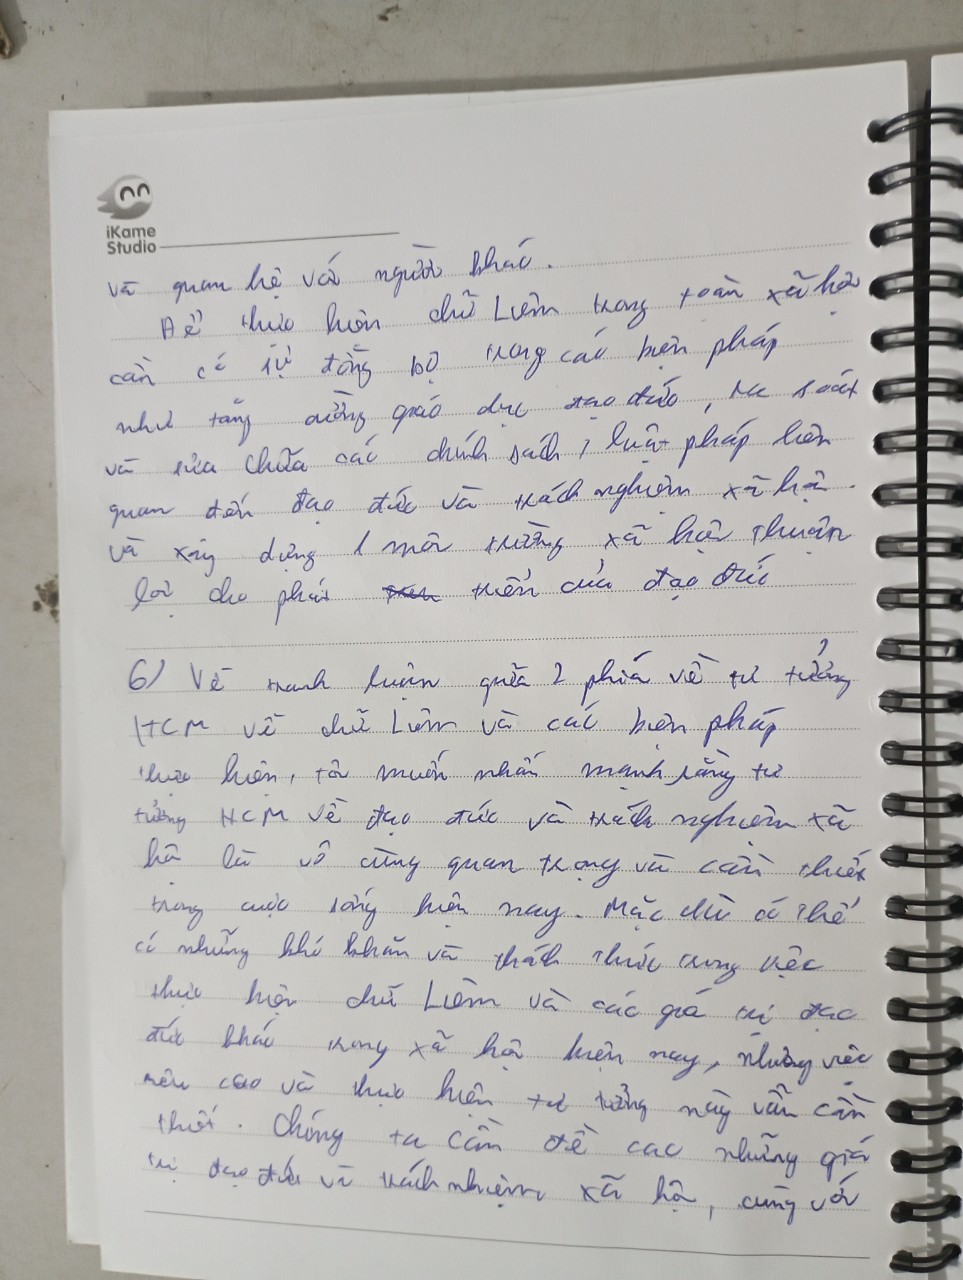 iKame
Studio
và quan hệ với người khác.
Để thực hiện chữ Liêm trong toàn xã hội
cần có sự đồng bộ trong các biện pháp
như tăng cường giáo dục đạo đức, rà soát
và sửa chữa các chính sách, luật pháp liên
quan đến đạo đức và trách nghiệm xã hội.
và xây dựng 1 môi trường xã hội thuận
lợi cho phát triển của đạo đức
6) Về tranh luận giữa 2 phía về tư tưởng
HCM về chữ Liêm và các biện pháp
thực hiện, tôi muốn nhấn mạnh rằng tư
tưởng HCM về đạo đức và trách nghiệm xã
hội là vô cùng quan trọng và cần thiết
trong cuộc sống hiện nay. Mặc dù có thể
có những khó khăn và thách thức trong việc
thực hiện chữ Liêm và các giá trị đạo
đức khác trong xã hội hiện nay, nhưng việc
nêu cao và thực hiện tư tưởng này vẫn cần
thiết. Chúng ta cần đề cao những giá
trị đạo đức và trách nhiệm xã hội, cùng với